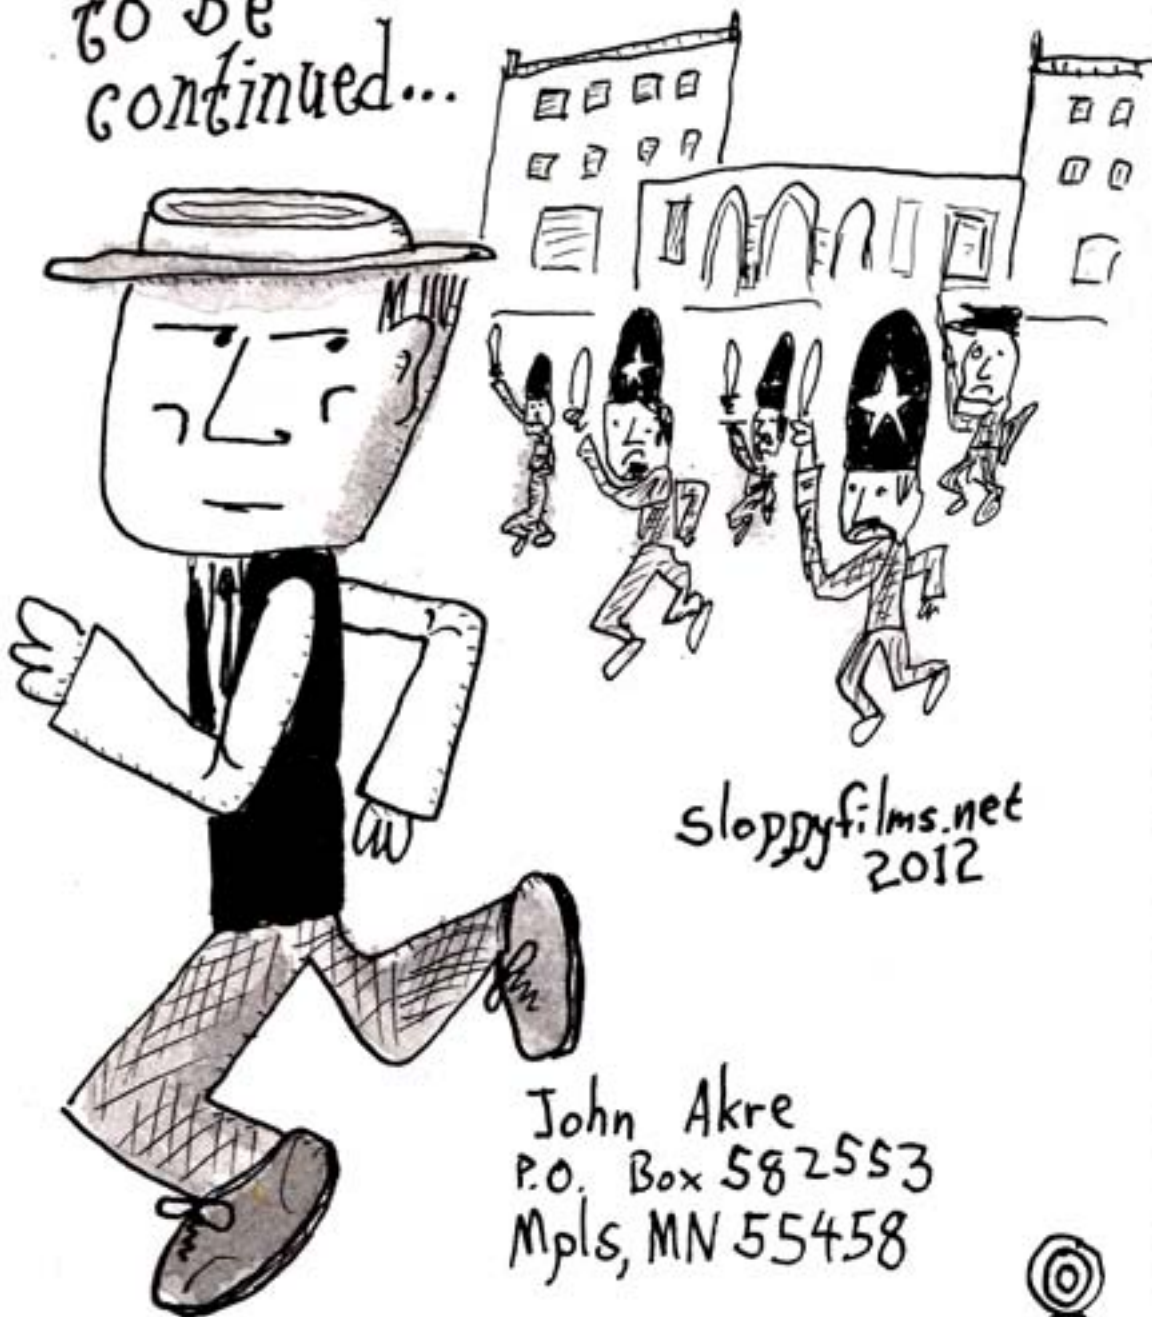 to be
continued...
sloppyfilms.net
2012
John Akre
P.O. Box 582553
Mpls, MN 55458